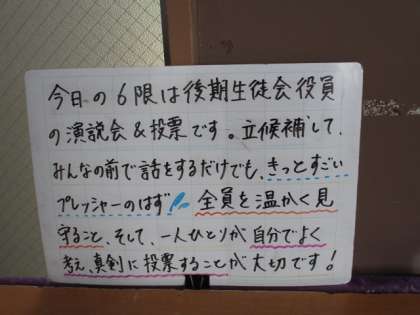 今日の6限は後期生徒会役員
の演説会&投票です。立候補して、
みんなの前で話をするだけでも、きっとすごい
プレッシャーのはず 全員を温かく見
守ること、そして、一人ひとりが自分でよく
考え、真剣に投票することが大切です!